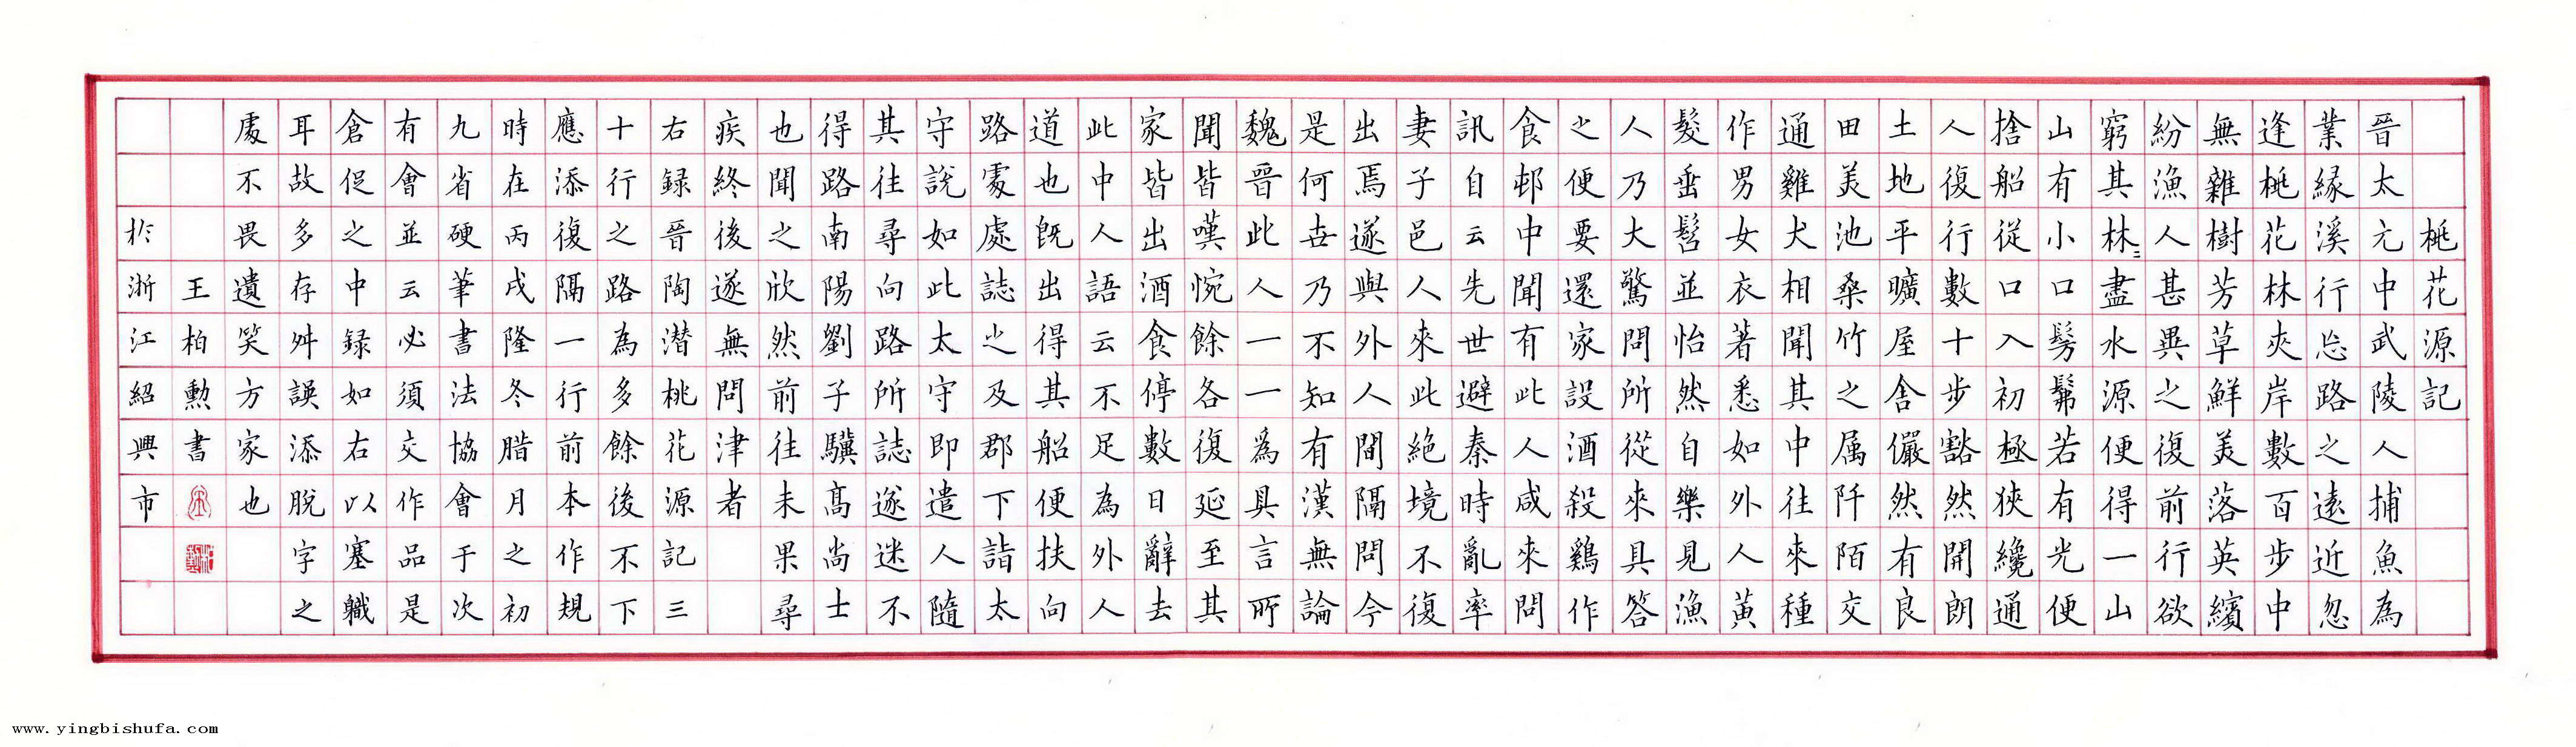 桃花源記
晉太元中武陵人捕魚為
業緣溪行忘路之遠近忽
逢桃花林夾岸數百步中
無雜樹芳草鮮美落英繽
紛漁人甚異之復前行欲
窮其林〻盡水源便得一山
山有小口髣髴若有光便
捨船從口入初極狹纔通
人復行數十步豁然開朗
土地平曠屋舍儼然有良
田美池桑竹之属阡陌交
通雞犬相聞其中往來種
作男女衣著悉如外人黃
髮垂髫並怡然自樂見漁
人乃大驚問所從來具答
之便要還家設酒殺鷄作
食邨中聞有此人咸來問
訊自云先世避秦時亂率
妻子邑人來此絕境不復
出焉遂與外人間隔問今
是何世乃不知有漢無論
魏晉此人一一為具言所
聞皆嘆惋餘各復延至其
家皆出酒食停數日辭去
此中人語云不足為外人
道也既出得其船便扶向
路處處誌之及郡下詣太
守說如此太守即遣人隨
其往尋向路所誌遂迷不
得路南陽劉子驥高尚士
也聞之欣然前往未果尋
疾終後遂無問津者
右録晉陶潜桃花源記三
十行之路為多餘後不下
應添復隔一行前本作規
時在丙戌隆冬腊月之初
九省硬筆書法協會于次
有會並云必須交作品是
倉促之中録如右以塞職
耳故多存舛誤添脫字之
處不畏遺笑方家也
王柏勲書
於浙江紹興市
www.yingbishufa.com